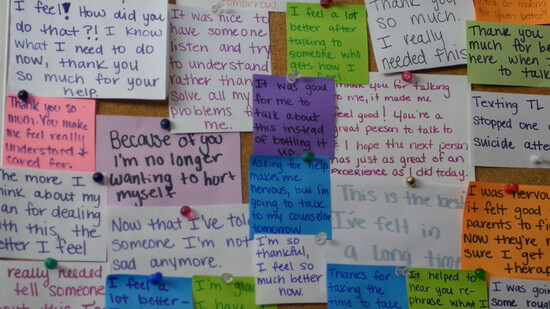 I feel! How did you
do that?! I know
what I need to do
now, thank you
so much for your
help.
tomorrow.
It was nice to
have someone
listen and try
to understand
rather than
solve all my
problems
me.
I feel a lot
better after
talking to
someone who
gets how I
feel
Thank you
so much.
I really
needed this
making
your
Thank you
much for be
here, when
to talk
Thank you so
much. You make
me feel really
understood &
cared for.
Because of you
I'm no longer
wanting to hurt
myself
It was good
for me to
talk about
this instead
of bottling
it up
Thank you for talking
to me, it made me
feel good! You're a
great person to talk to
I hope the next person
has just as great of an
experience as I did today.
Texting TL
stopped one
suicide atte
The more I
think about my
plan for dealing
with this, the
better I feel
Now that I've told
someone I'm not
sad anymore.
Asking for help
makes me
nervous, but i'm
going to talk
to my counselor
tomorrow
This is the bes
I've felt in
a long time
I was nervou
it felt good
parents to fi
Now they're m
sure I get
therap
I'm so
thankful,
I feel so
much better
now.
really needed
tell someone
about this
I feel a
lot better -
I'm gla
I have
Thanks for
taking the
time to talk
It helped to
hear you re-
phrase what I
I was
going
some rou